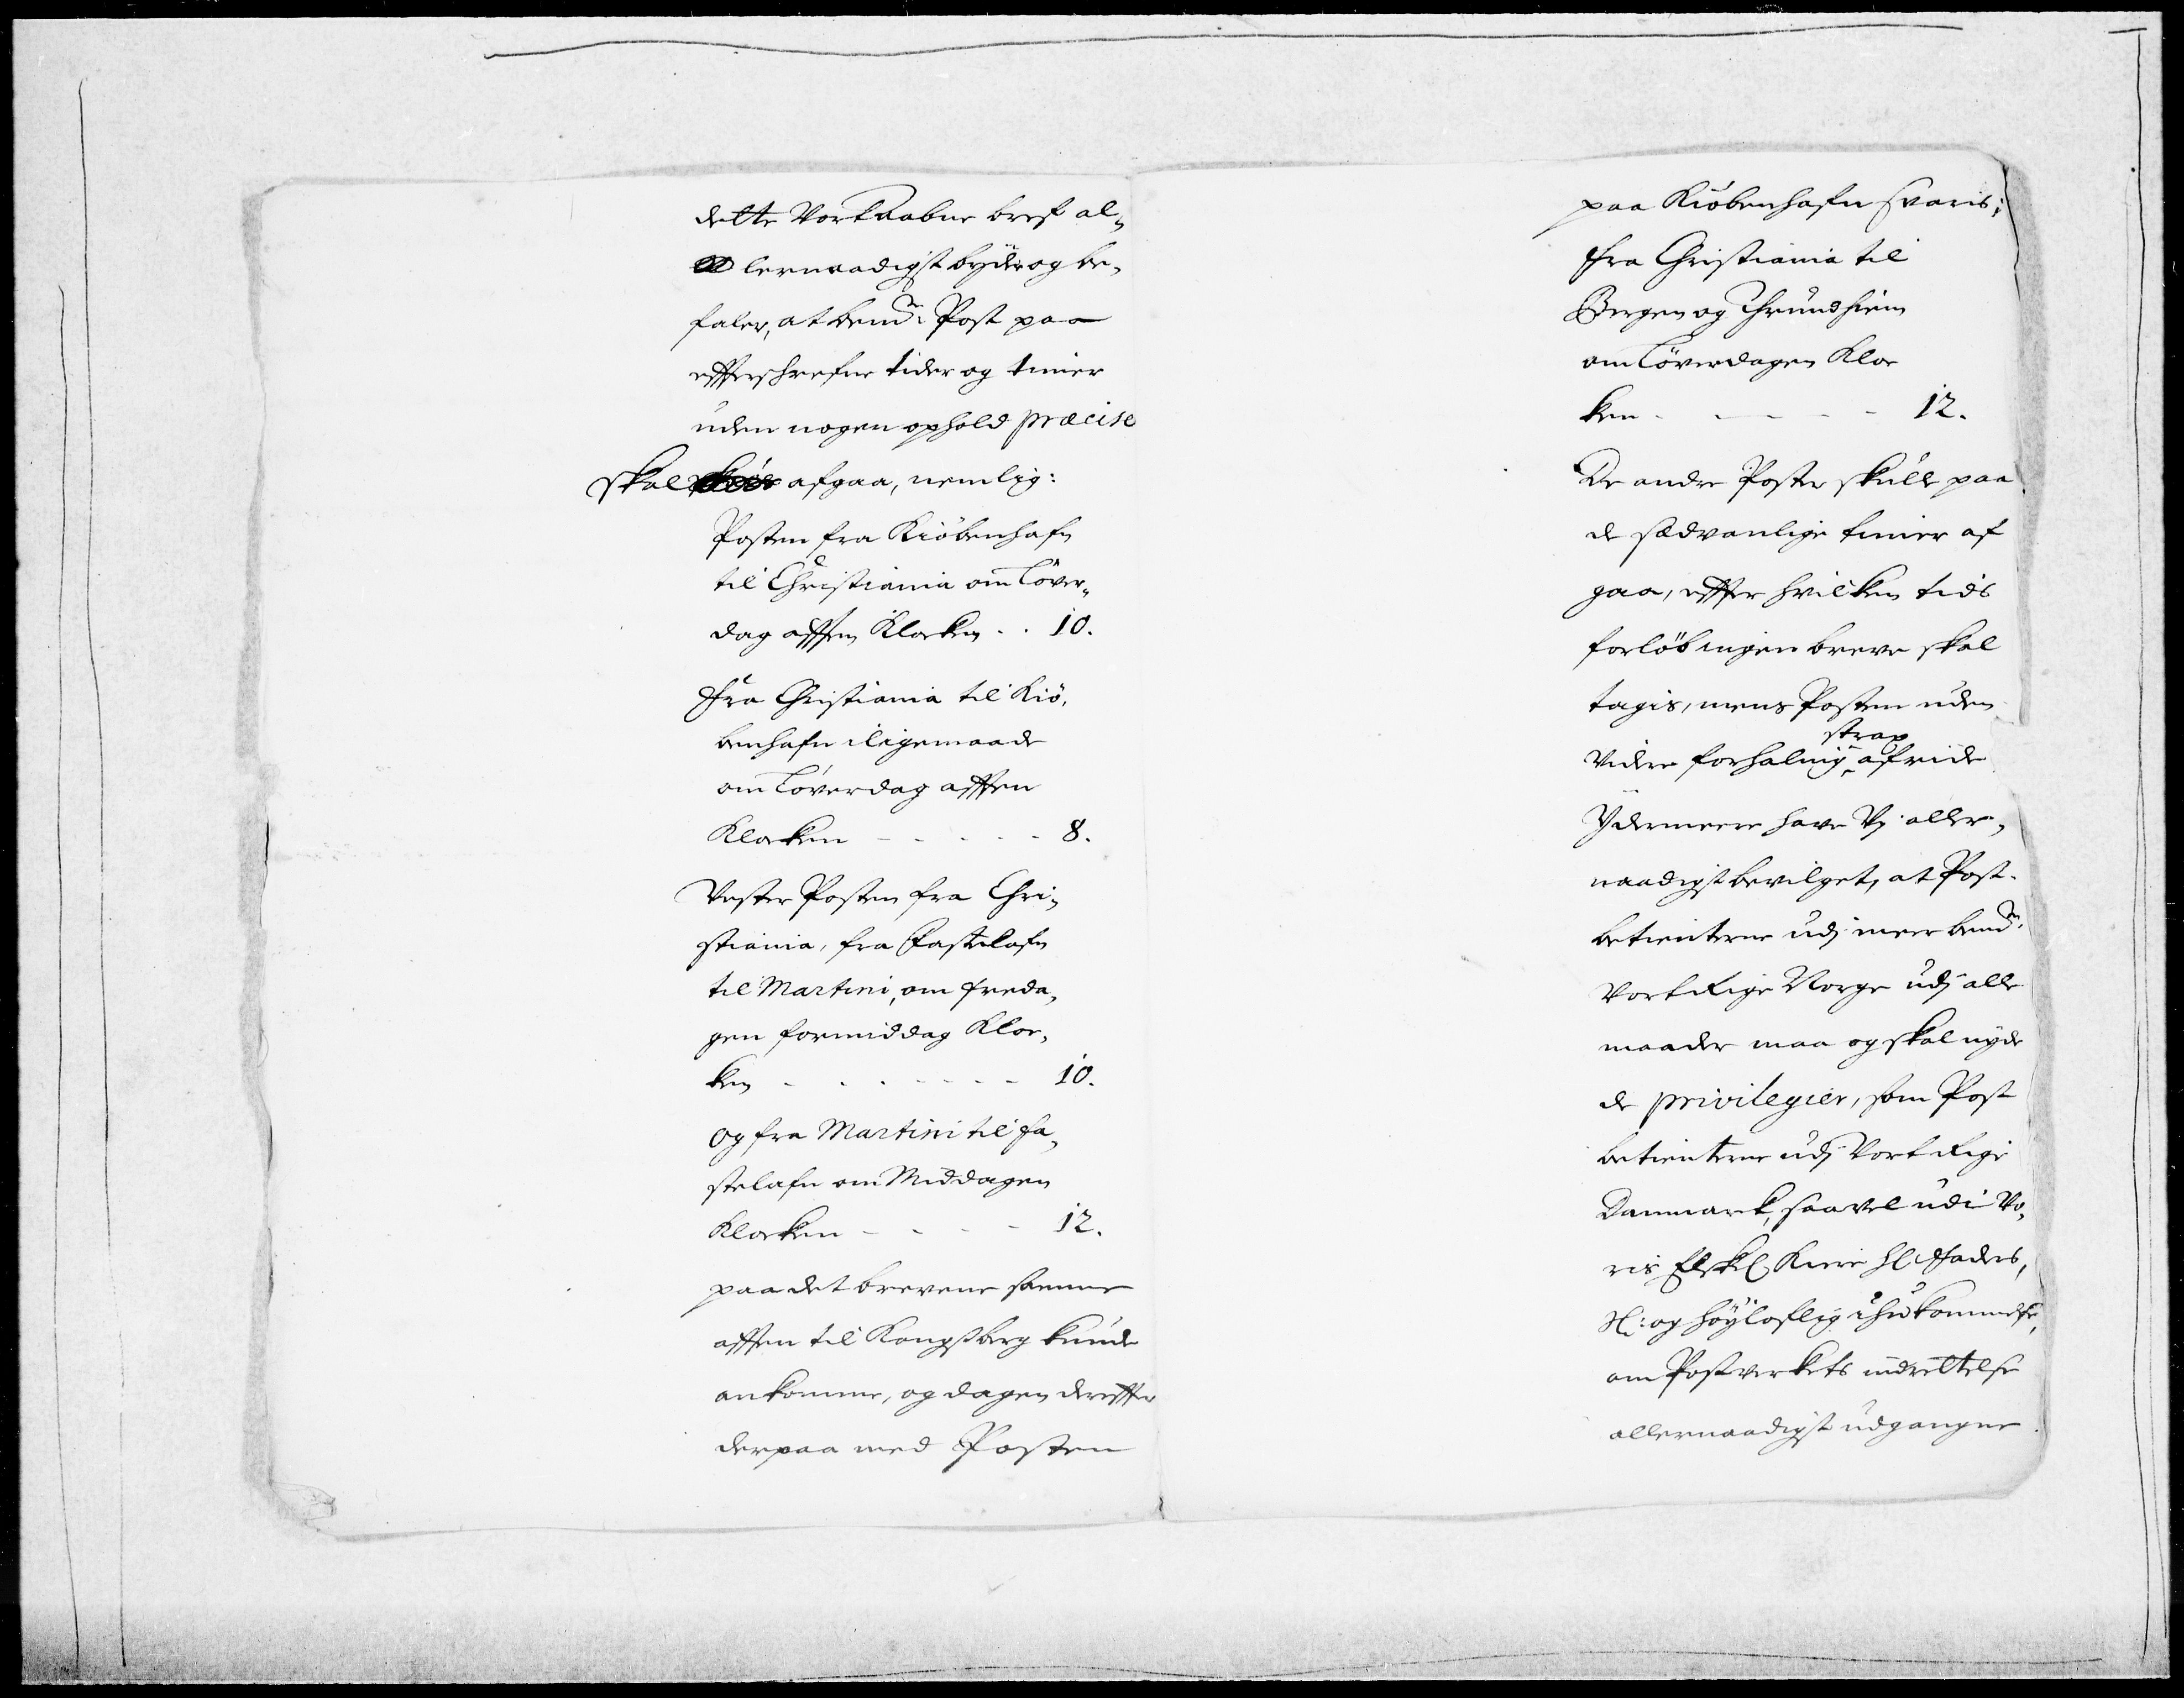 dette Vort aabne bref al-
lernaadigst byde og be-
faler, at bemte Post paa
effterschrefne tider og timer
uden nogen ophold præcise
skal afgaa, nemlig:
Posten fra Kiöbenhafn
til Christiania om Löver-
dag afften Klocken . . 10.
Fra Christiania til Kiö-
benhafn iligemaade
om Löverdag afften
Klocken - - - - - 8.
Vester Posten fra Chri-
stiania, fra Fastelafn
til Martini, om freda-
gen formiddag Kloc-
ken - - - - - - - 10.
Og fra Martini til Fa-
stelafn om Middagen
Klocken - - - - 12.
paa det brevene samme
afften til Kongsberg kunde
ankomme, og dagen dereffter
derpaa med Posten
paa Kiöbenhafn svaris;
Fra Christiania til
Bergen og Thrundhiem
om Löverdagen Kloc
ken - - - - - 12.
De andre Poster skulle paa
de sædvanlige timer af
gaa, effter hvilken tids
forløb ingen breve skal
tagis, mens Posten uden
strax
videre forhaling afride
Ydermeere have Vj aller-
naadigst bevilget, at Post-
betienterne udj meer bemte
Vort Rige Norge udj alle
maader maa og skal nyde
de privilegier, som Post
betienterne udj Vort Rige
Danmark, saavel udi Vo-
ris Elskel Kiere Hr Faders,
Hl: og höyloflig ihukommelse,
om Postverkets indrettelse
allernaadigst udgangne